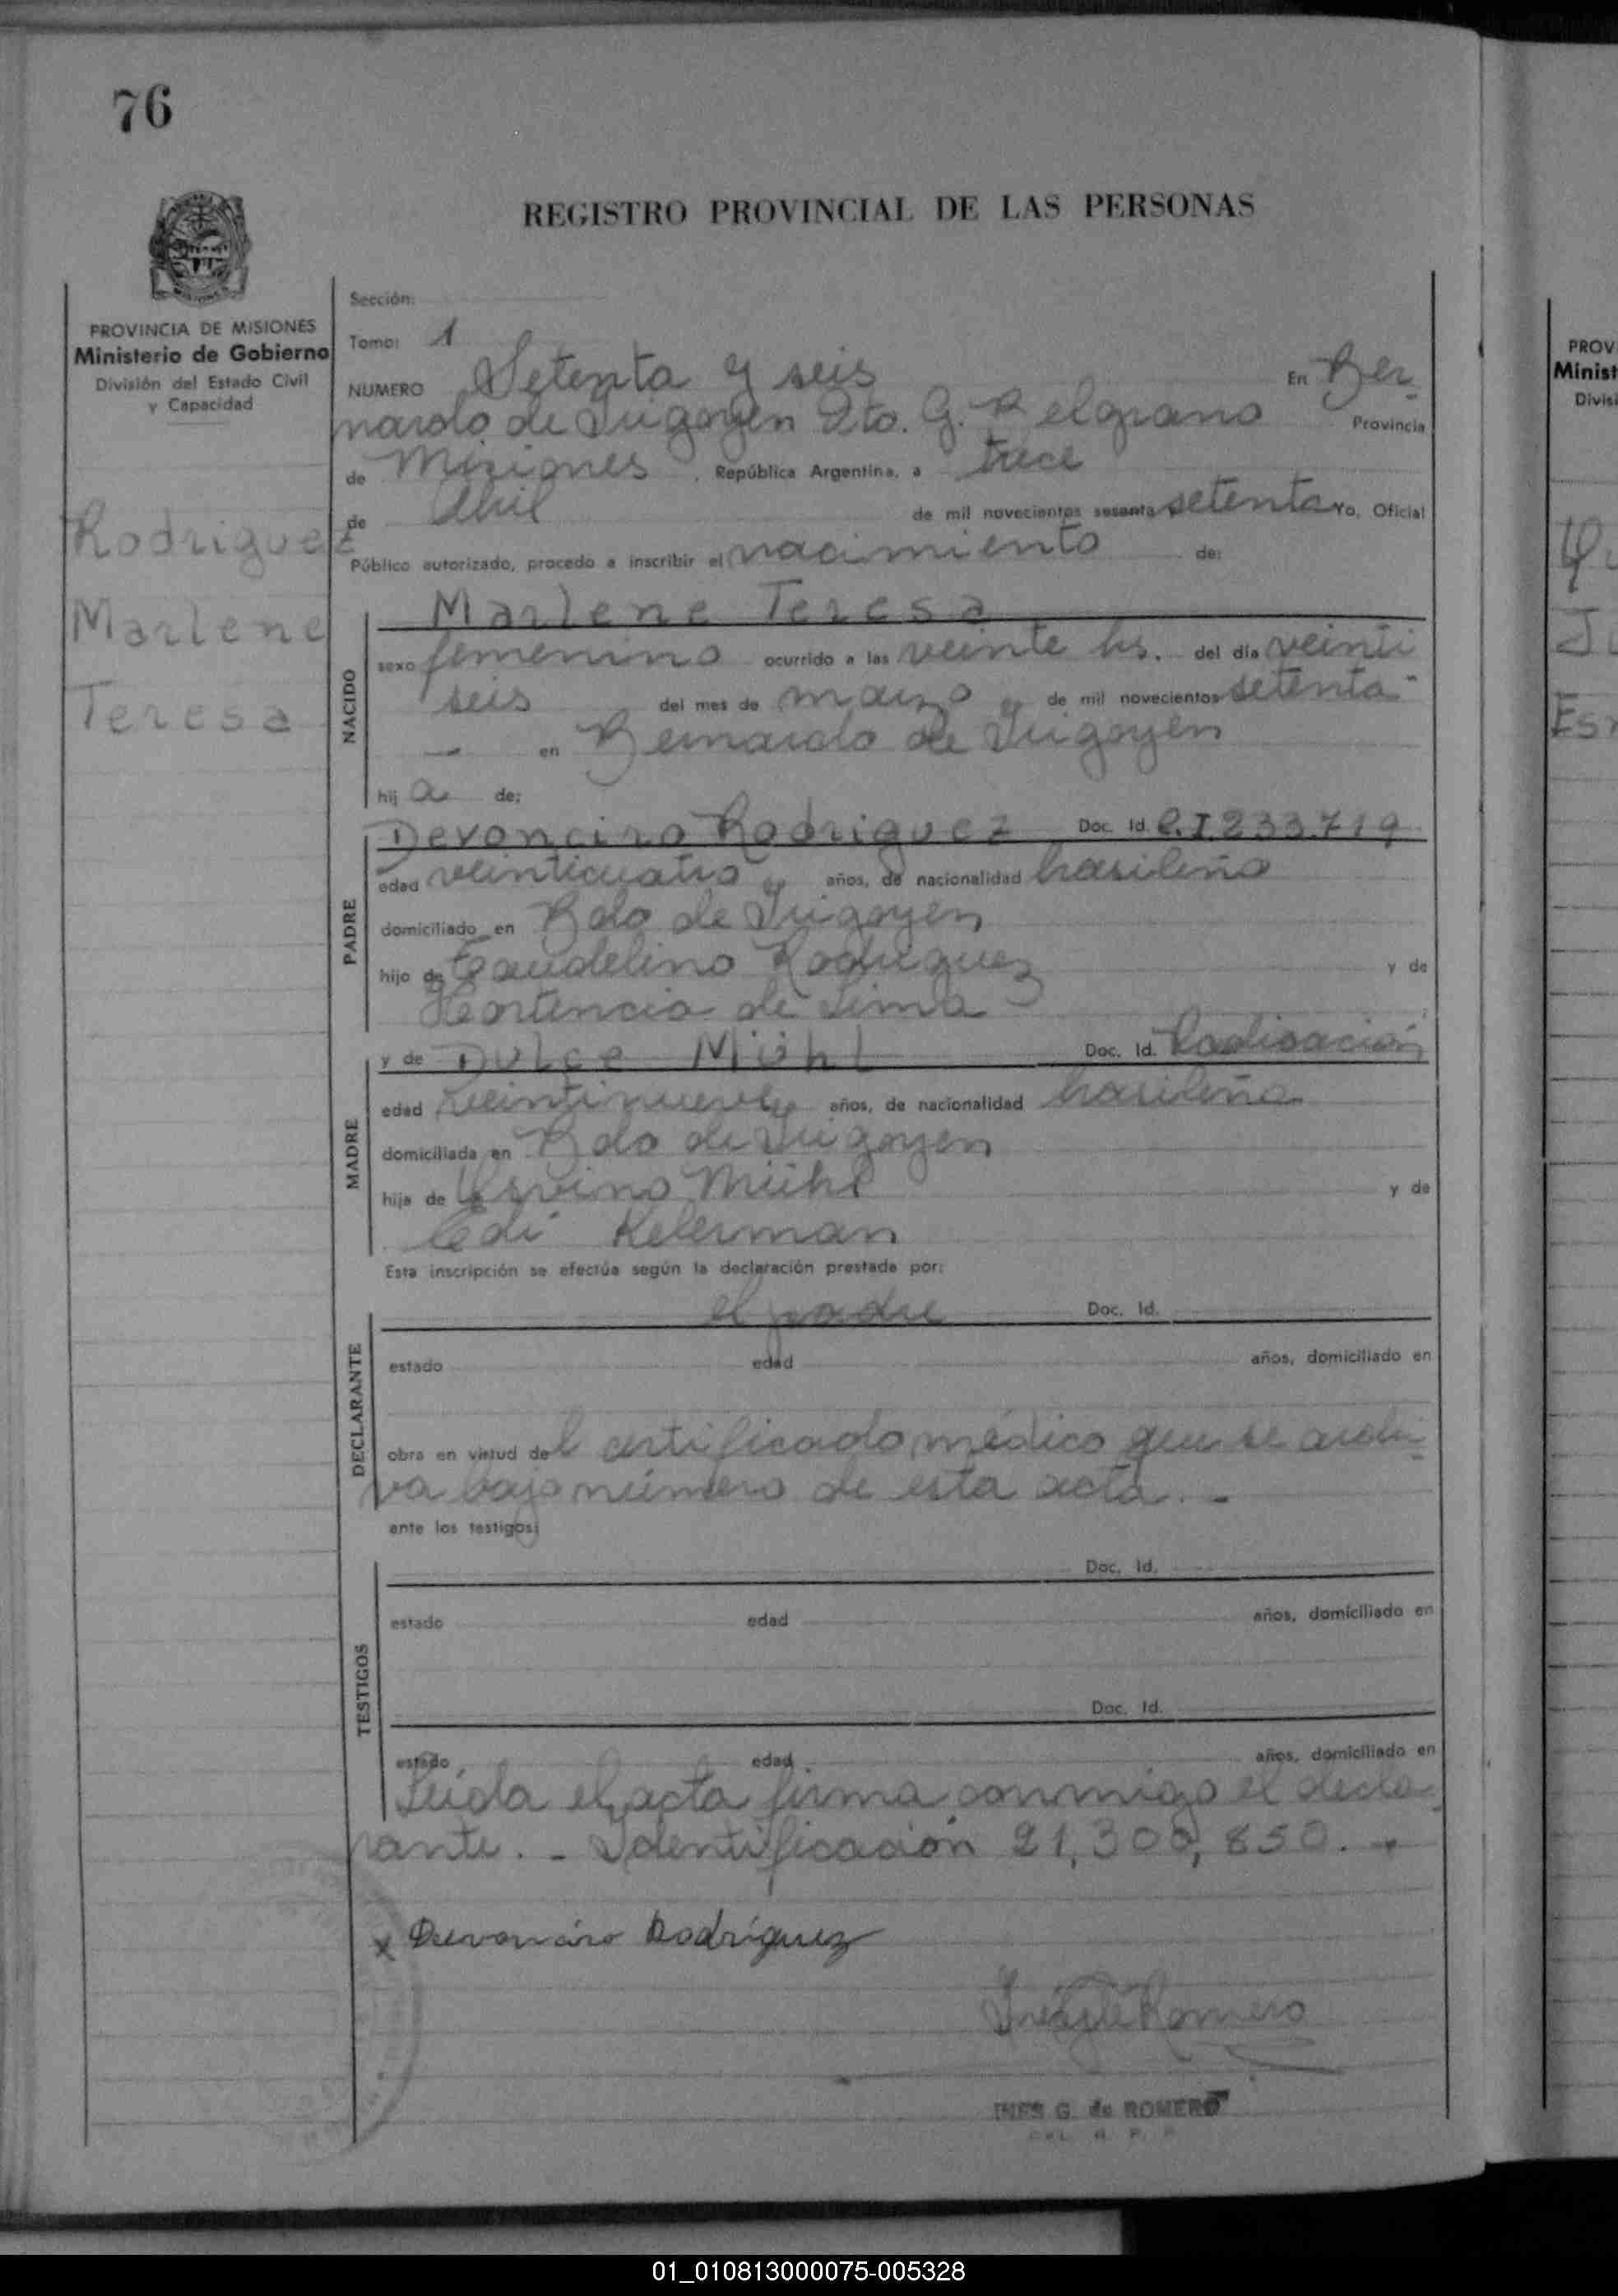 76
REGISTRO PROVINCIAL DE LAS PERSONAS
PROVINCIA DE MISIONES
Ministerio de Gobierno
División del Estado Civil
y Capacidad
Rodriguez
Marlene
Teresa
Sección:
Tomo: 1
NUMERO Setenta y seis En Ber-
nardo de Irigoyen Dto. G. Belgrano Provincia
de Misiones, República Argentina, a trece
de Abril de mil novecientos sesenta setenta Yo, Oficial
Público autorizado, procedo a inscribir el nacimiento de:
NACIDO
Marlene Teresa
sexo femenino ocurrido a las veinte hs. del día veinti
seis del mes de marzo de mil novecientos setenta-
- en Bernardo de Irigoyen
hij a de:
PADRE
Devonciro Rodriguez Doc. Id. C.I. 233.719
edad veinticuatro años, de nacionalidad brasileño
domiciliado en Bdo de Irigoyen
hijo de Rodriguez y de
Hortencia de Lima
MADRE
y de Dulce Mühl Doc. Id. Radicación
edad veintinueve años, de nacionalidad brasileña
domiciliada en Bdo de Irigoyen
hija de Ervino Mühl y de
Edi Kelerman
Esta inscripción se efectúa según la declaración prestada por:
DECLARANTE
el padre Doc. Id.
estado edad años, domiciliado en
obra en virtud del certificado médico que se archi-
va bajo número de esta acta.-
ante los testigos:
TESTIGOS
Doc. Id.
estado edad años, domiciliado en
Doc. Id.
estado edad años, domiciliado en
Leída el acta firma conmigo el decla-
rante.- Identificación 21,300,850.-
x Devonciro Rodríguez
Romero
INES G. de ROMERO
DEL. R. P. P.
PROV
Minist
Divisi
01_010813000075-005328